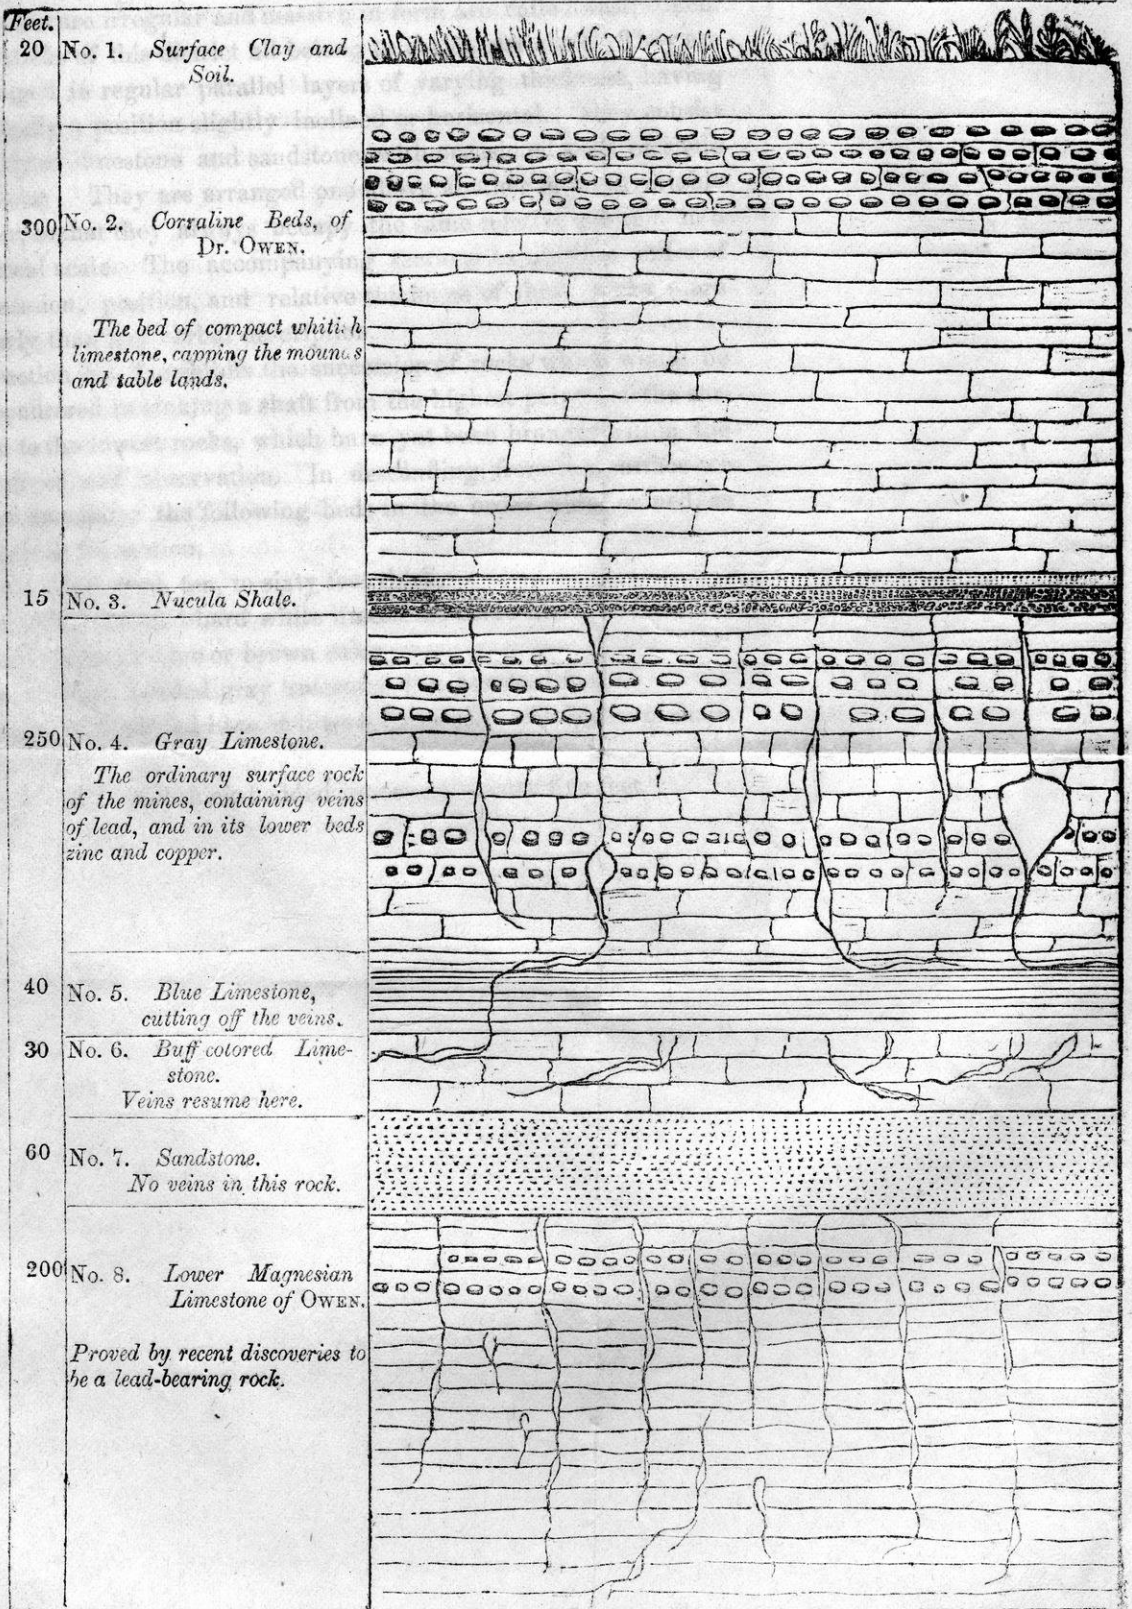 Feet.
20 No. 1. Surface Clay and
Soil.
300 No. 2. Corraline Beds, of
Dr. OWEN.
The bed of compact whitish
limestone, capping the mounds
and table lands.
15 No. 3. Nucula Shale.
250 No. 4. Gray Limestone.
The ordinary surface rock
of the mines, containing veins
of lead, and in its lower beds
zinc and copper.
40 No. 5. Blue Limestone,
cutting off the veins.
30 No. 6. Buff colored Lime-
stone.
Veins resume here.
60 No. 7. Sandstone.
No veins in this rock.
200 No. 8. Lower Magnesian
Limestone of OWEN.
Proved by recent discoveries to
be a lead-bearing rock.